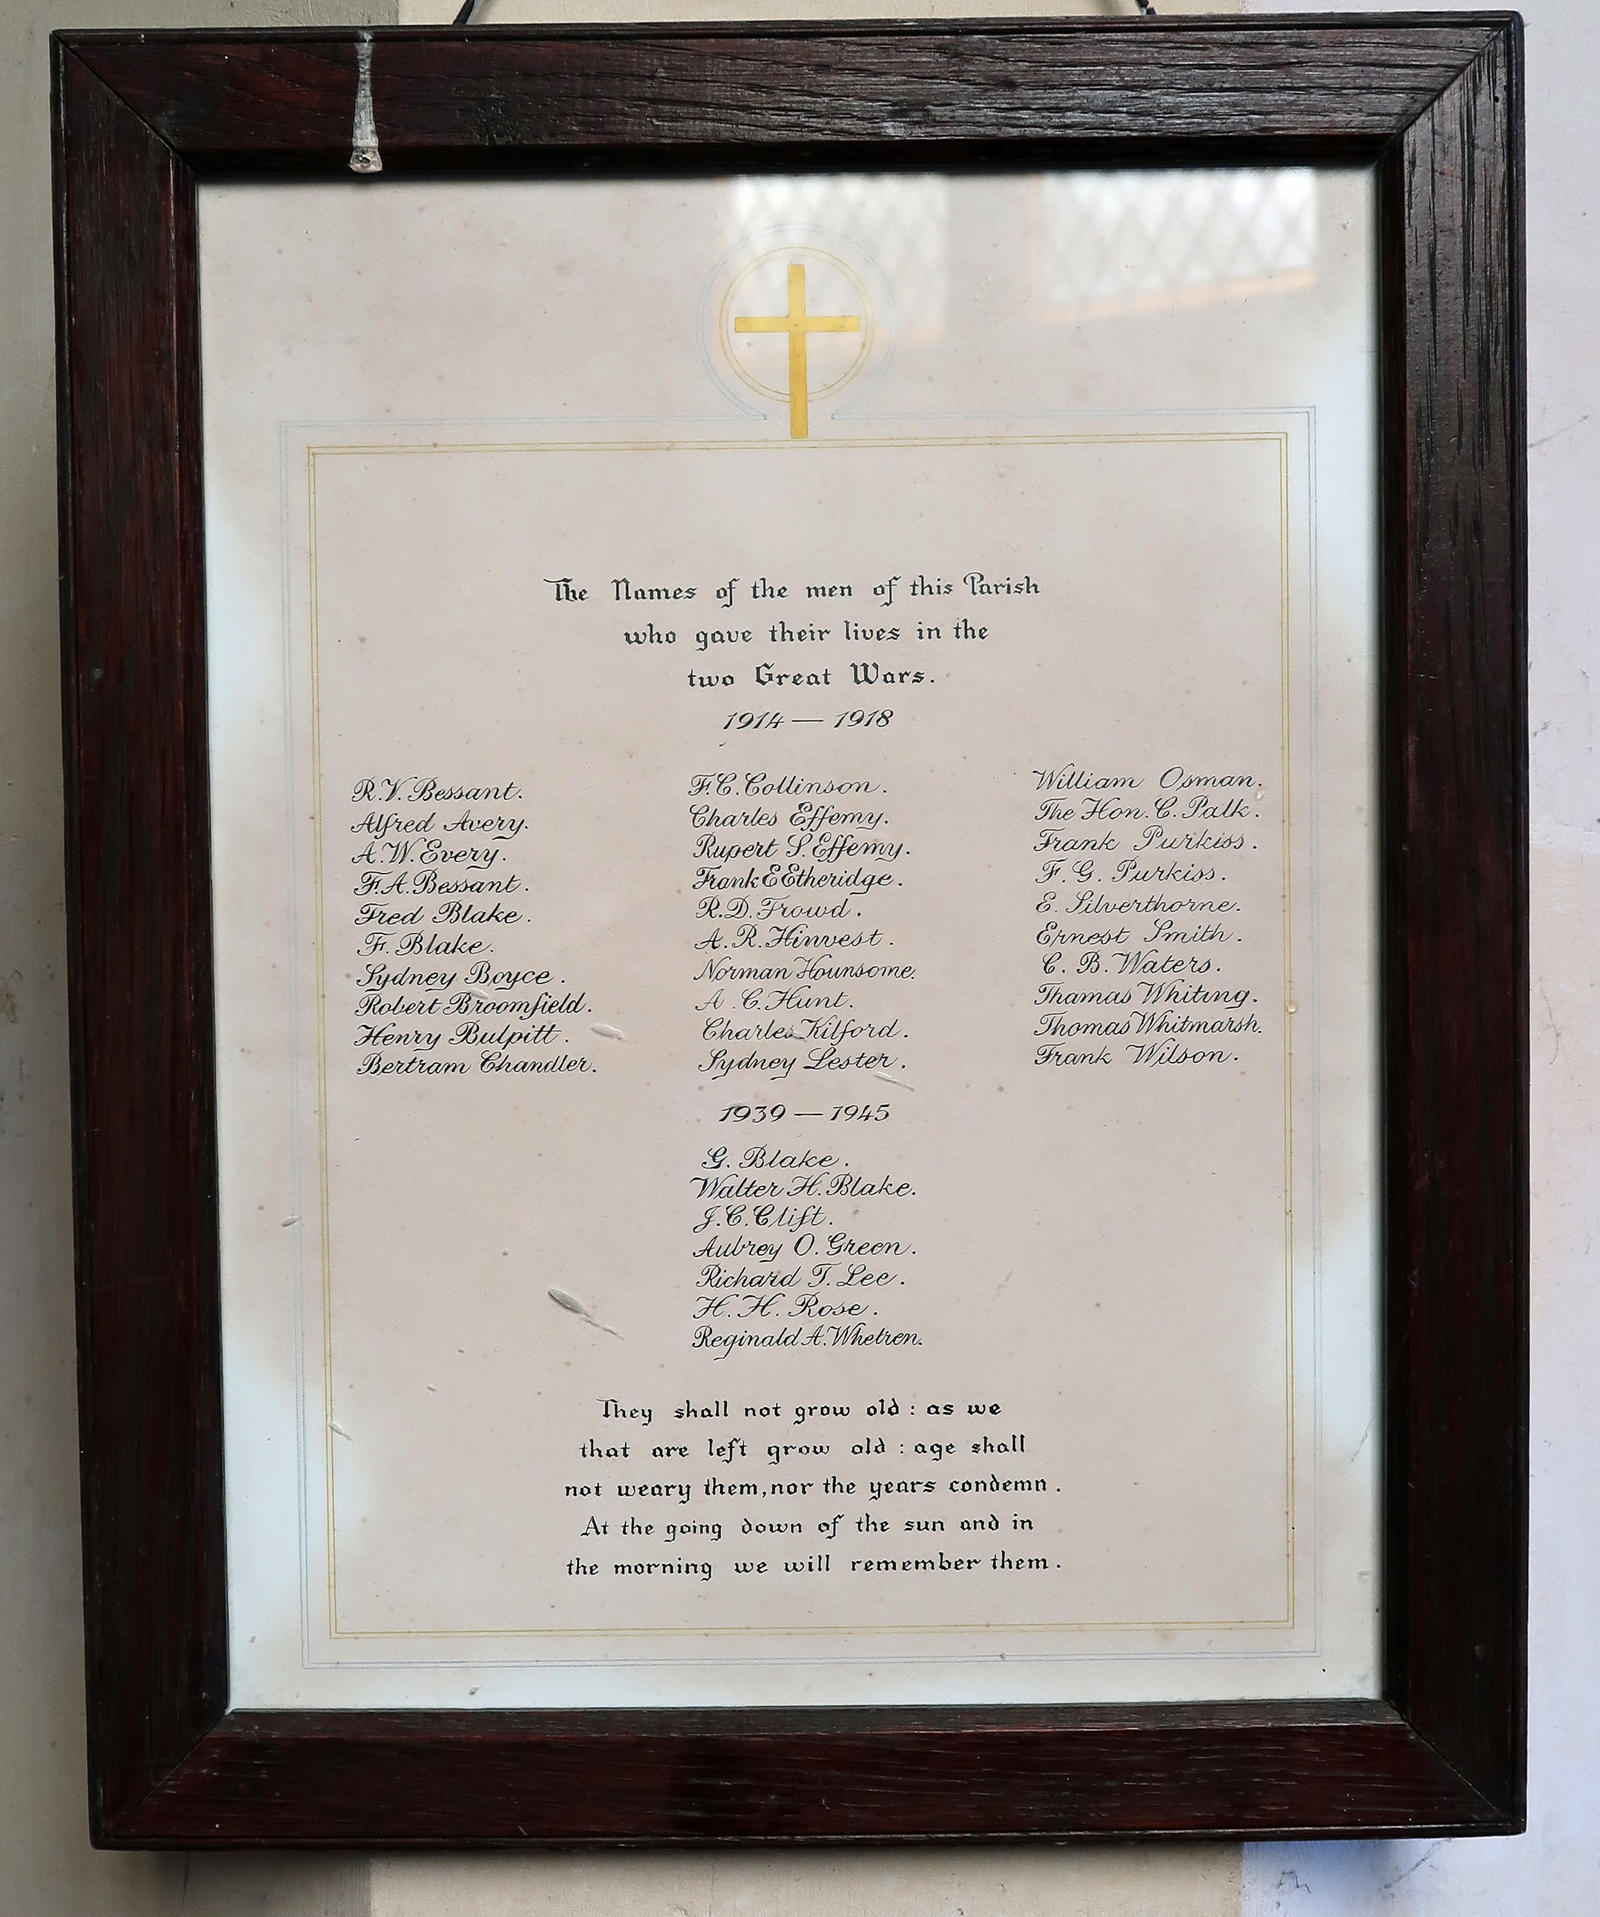 The Names of the men of this Parish
who gave their lives in the
two Great Wars.
1914 — 1918
R.V. Bessant.
Alfred Avery.
A.W. Every.
F.A. Bessant.
Fred Blake.
F. Blake.
Sydney Boyce.
Robert Broomfield.
Henry Bulpitt.
Bertram Chandler.
F.C. Collinson.
Charles Effemy.
Rupert S. Effemy.
Frank E Etheridge.
R.D. Frowd.
A.R. Hinvest.
Norman Hounsome.
A.C. Hunt.
Charles Kilford.
Sydney Lester.
William Osman.
The Hon. C. Palk.
Frank Purkiss.
F. G. Purkiss.
E. Silverthorne.
Ernest Smith.
C. B. Waters.
Thamas Whiting.
Thomas Whitmarsh.
Frank Wilson.
1939 — 1945
G. Blake.
Walter H. Blake.
J.C. Clift.
Aubrey O. Green.
Richard T. Lee.
H. H. Rose.
Reginald A. Whetren.
They shall not grow old : as we
that are left grow old : age shall
not weary them, nor the years condemn.
At the going down of the sun and in
the morning we will remember them.